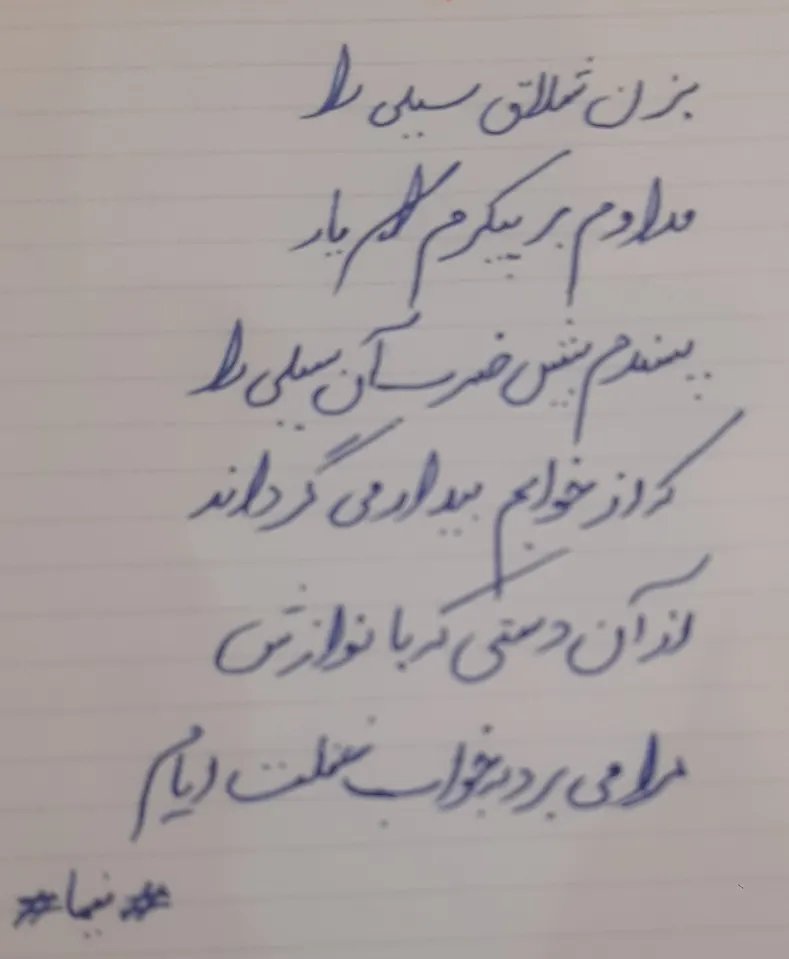 بزن شلاق سیلی را
مداوم بر پیکرم یار
پسندم بیش ضرب آن سیلی را
که از خوابم بیدار می گرداند
از آن دستی که با نوازش
مرا می برد در خواب غفلت ایام
#نیما#